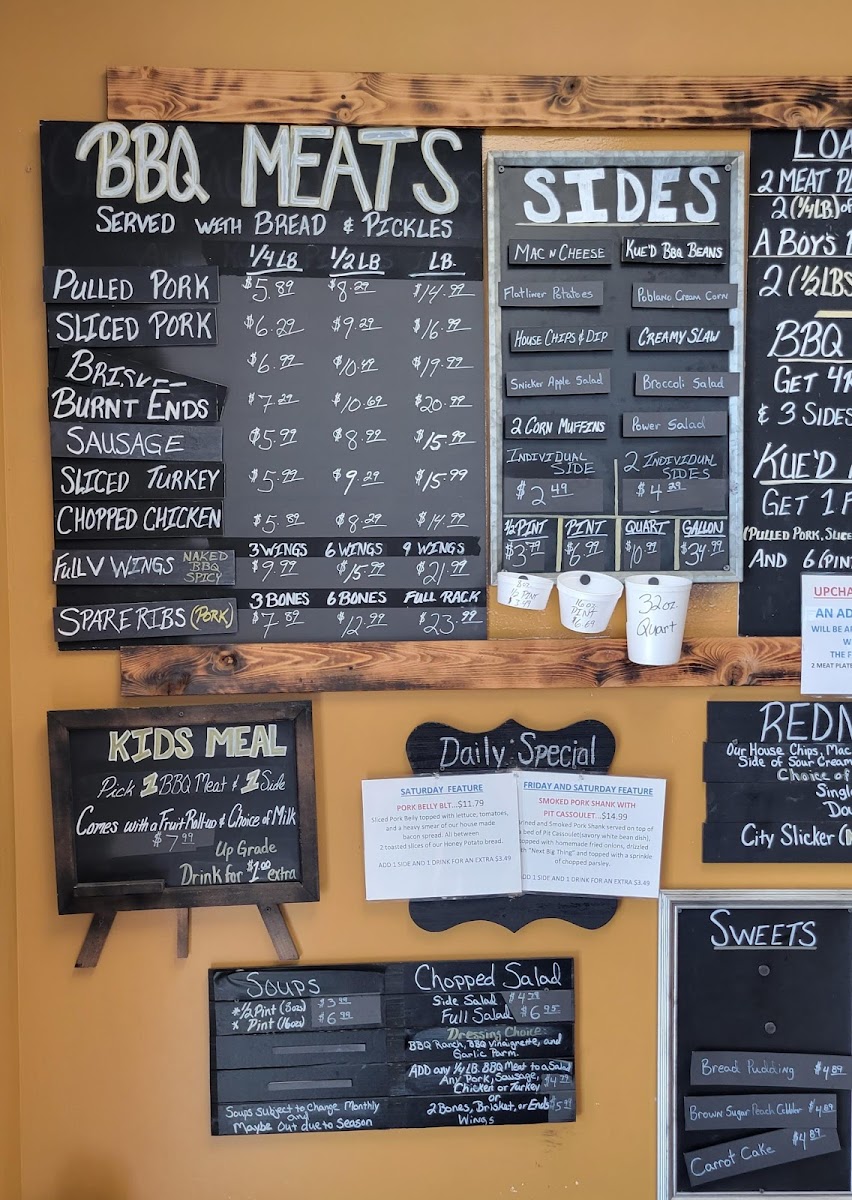 BBQ MEATS
SERVED WITH BREAD & PICKLES
1/4 LB 1/2 LB LB
PULLED PORK $5.89 $8.29 $14.99
SLICED PORK $6.29 $9.29 $16.99
$6.99 $10.49 $19.99
BURNT ENDS $7.29 $10.69 $20.99
SAUSAGE $5.99 $8.99 $15.99
SLICED TURKEY $5.99 $9.29 $15.99
CHOPPED CHICKEN $5.89 $8.29 $14.99
3 WINGS 6 WINGS 9 WINGS
FULL V WINGS NAKED BBQ SPICY $9.99 $15.99 $21.99
3 BONES 6 BONES FULL RACK
SPARE RIBS (PORK) $7.89 $12.99 $23.99
SIDES
MAC N CHEESE KUE'D BBQ BEANS
Flatliner Potatoes Poblano Cream Corn
HOUSE CHIPS & DIP CREAMY SLAW
Snicker Apple Salad Broccoli Salad
2 CORN MUFFINS Power Salad
INDIVIDUAL SIDE $2.49
2 INDIVIDUAL SIDES $4.29
1/2 PINT PINT QUART GALLON
$3.79 $6.99 $10.99 $34.99
8oz 1/2 PINT $3.49
16oz PINT $6.69
32oz. Quart
2 MEAT
2 (1/4 LB)
A BOYS
2 (1/2 LBS
BBQ
GET
& 3 SIDES
KUE'D
GET 1
(PULLED PORK,
AND 6
AN
WILL BE
THE
2 MEAT
KIDS MEAL
Pick 1 BBQ Meat & 1 Side
Comes with a Fruit Roll-up & Choice of Milk
$7.99
Up Grade
Drink for $1.00 extra
Daily Special
SATURDAY FEATURE
PORK BELLY BLT...$11.79
Sliced Pork Belly topped with lettuce, tomatoes,
and a heavy smear of our house made
bacon spread. All between
2 toasted slices of our Honey Potato bread.
ADD 1 SIDE AND 1 DRINK FOR AN EXTRA $3.49
FRIDAY AND SATURDAY FEATURE
SMOKED PORK SHANK WITH
PIT CASSOULET...$14.99
and Smoked Pork Shank served on top of
bed of Pit Cassoulet(savory white bean dish),
topped with homemade fried onions, drizzled
"Next Big Thing" and topped with a sprinkle
of chopped parsley.
ADD 1 SIDE AND 1 DRINK FOR AN EXTRA $3.49
Our House Chips, Mac
Side of Sour Cream
Choice of
City Slicker
Soups
1/2 Pint (8ozs) $3.99
Pint (16ozs) $6.99
Soups subject to Change Monthly
and
Maybe Out due to Season
Chopped Salad
Side Salad $4.79
Full Salad $6.95
Dressing Choice:
BBQ Ranch, BBQ Vinaigrette, and
Garlic Parm.
ADD any 1/4 LB. BBQ Meat to a Salad
Any Pork, Sausage,
Chicken or Turkey $4.79
or
2 Bones, Brisket, or Ends $5.99
Wings
SWEETS
Bread Pudding $4.89
Brown Sugar Peach Cobbler $4.89
Carrot Cake $4.89